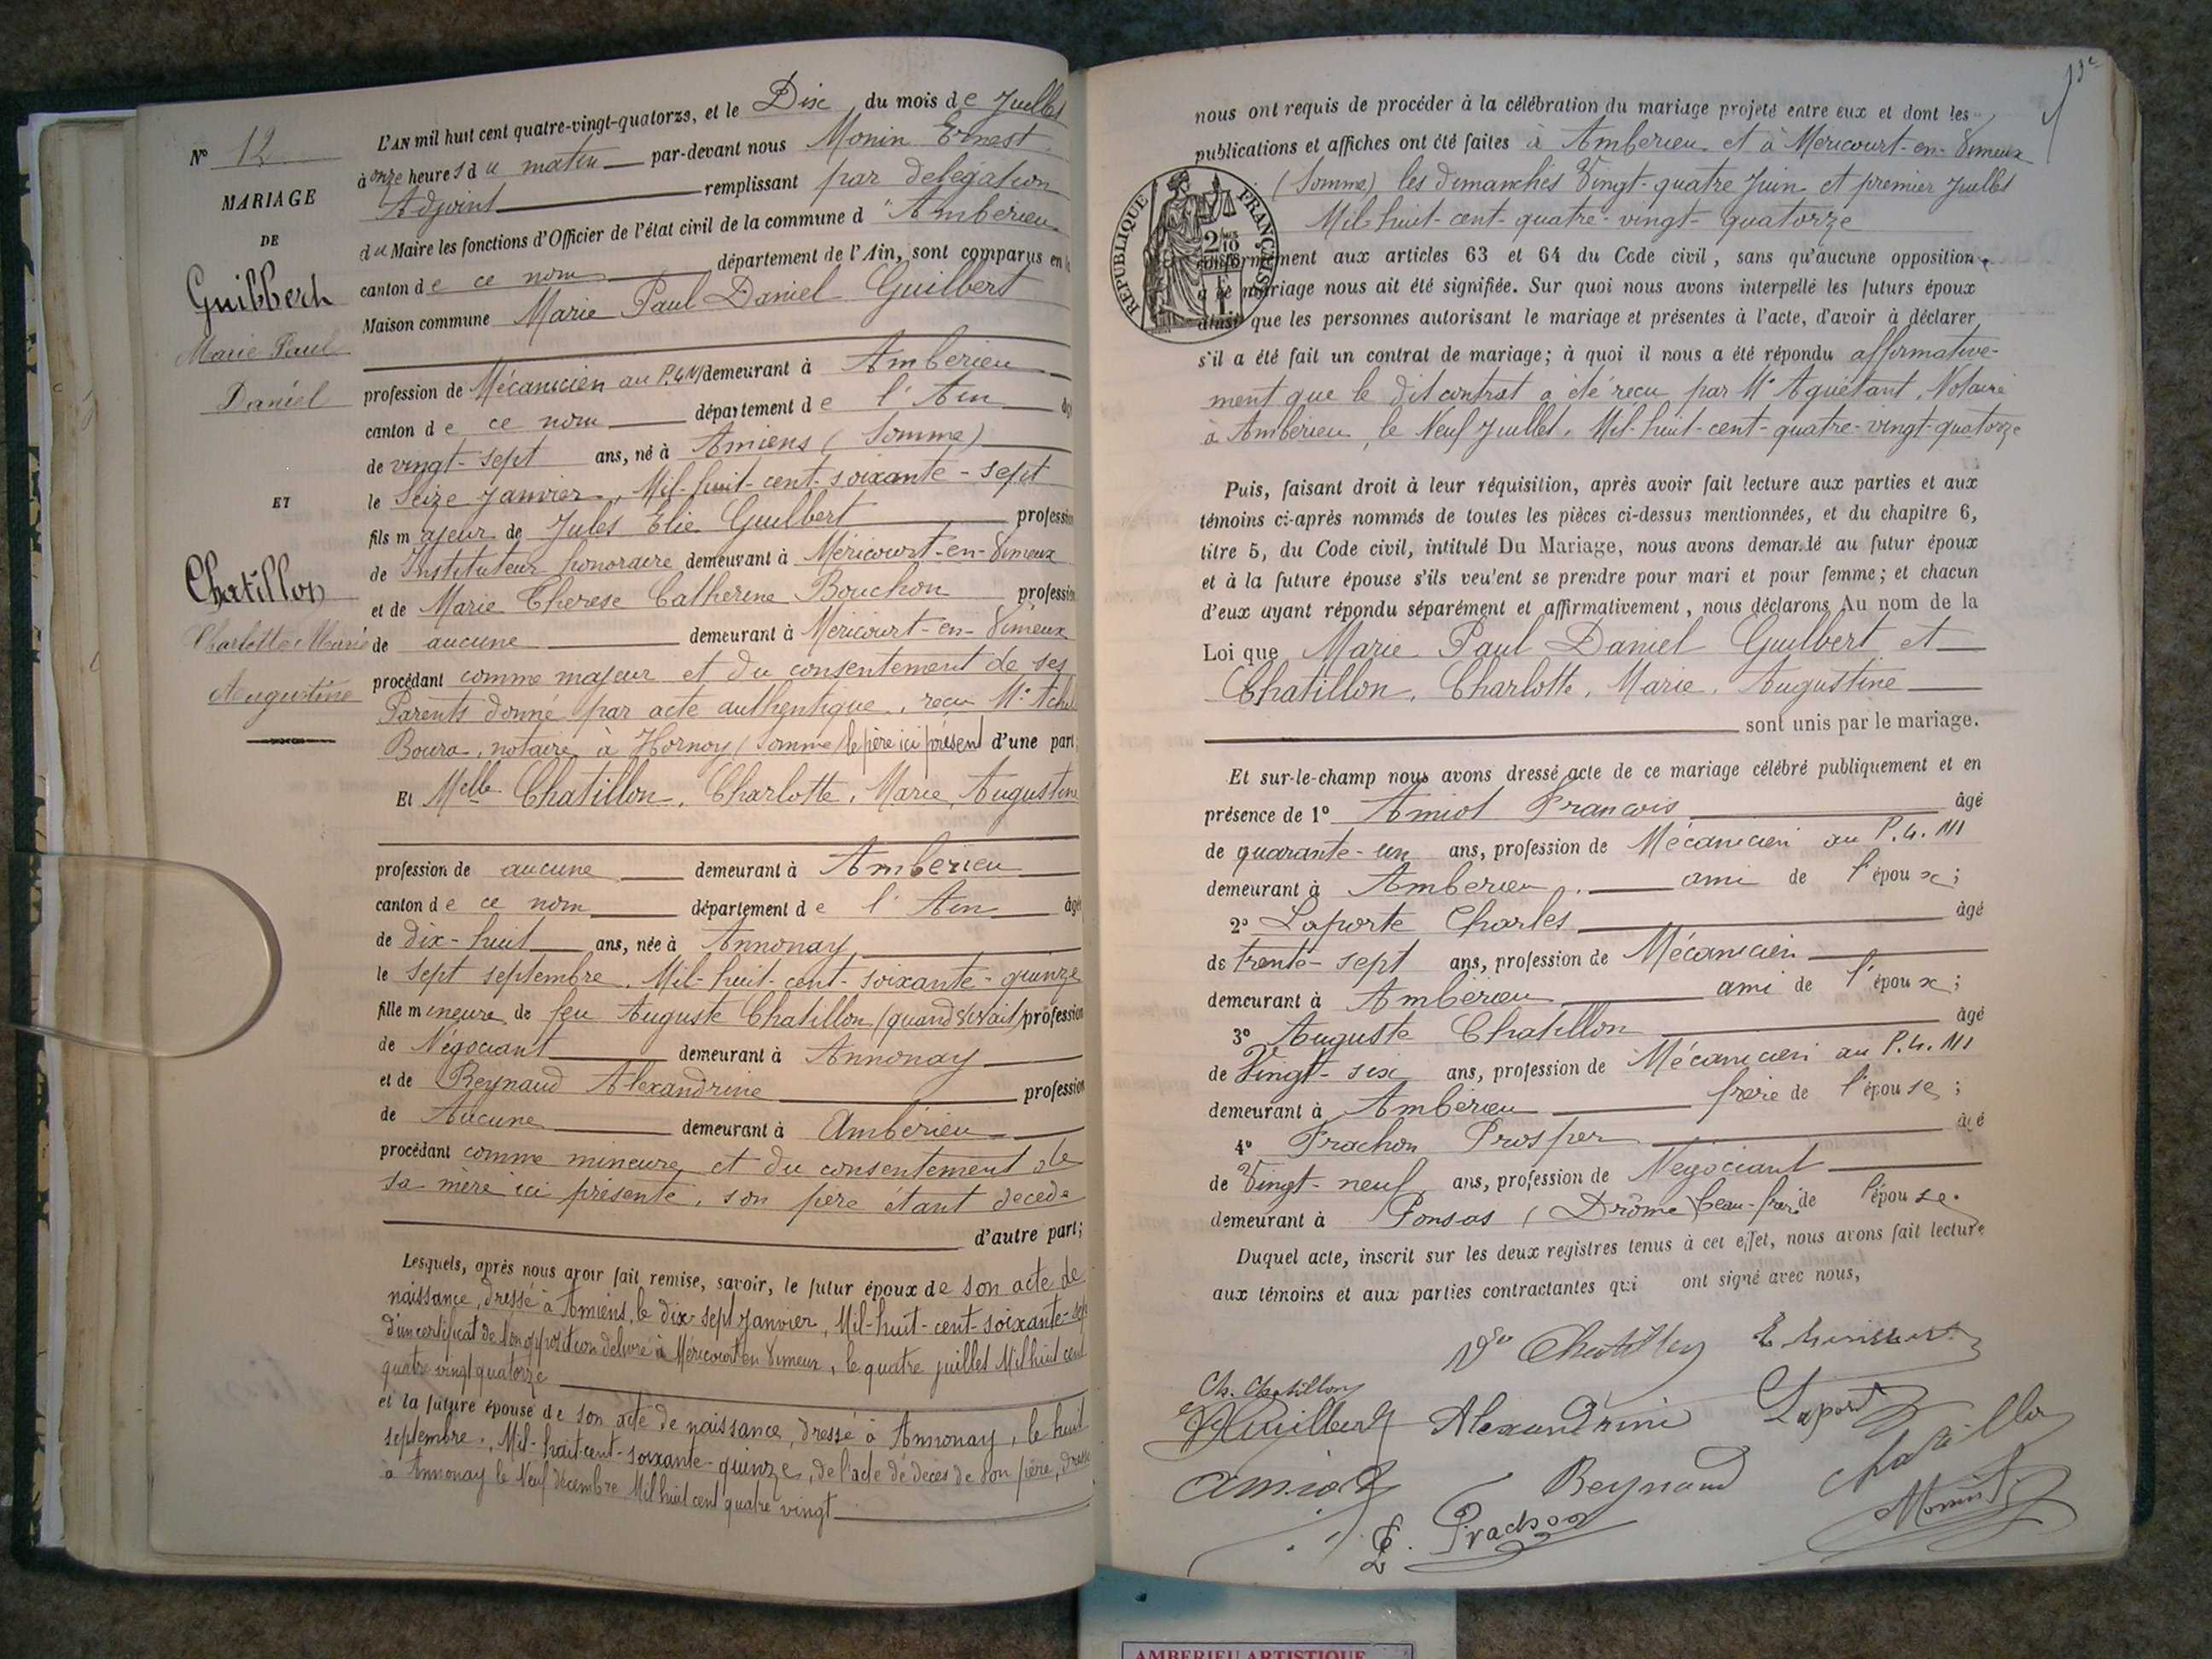 N° 12
MARIAGE
DE
Guilbert
Marie Paul
Daniel
ET
Chatillon
Charlotte Marie
Augustine
L'AN mil huit cent quatre-vingt-quatorze, et le Dix du mois de Juillet
à onze heures du matin par-devant nous Monin Ernest
Adjoint remplissant par délégation
du Maire les fonctions d'Officier de l'état civil de la commune d'Ambérieu
canton de ce nom département de l'Ain, sont comparus en la
Maison commune Marie Paul Daniel Guilbert
profession de Mécanicien au P.L.M demeurant à Ambérieu
canton de ce nom département de l'Ain âgé
de vingt-sept ans, né à Amiens (Somme)
le Seize Janvier, Mil-huit-cent-soixante-sept
fils majeur de Jules Elie Guilbert profession
de Instituteur honoraire demeurant à Méricourt-en-Vimeux
et de Marie Therese Catherine Bouchon profession
de aucune demeurant à Méricourt-en-Vimeux
procédant comme majeur et du consentement de ses
Parents donné par acte authentique, reçu Me
notaire à Hornoy (Somme) le père ici présent d'une part;
Et Melle Chatillon, Charlotte, Marie, Augustine
profession de aucune demeurant à Ambérieu
canton de ce nom département de l'Ain âgée
de dix-huit ans, née à Annonay
le sept septembre, Mil-huit-cent-soixante-quinze
fille mineure de feu Auguste Chatillon (quand vivait) profession
de Négociant demeurant à Annonay
et de Reynaud Alexandrine profession
de Aucune demeurant à Ambérieu
procédant comme mineure et du consentement de
sa mère ici présente, son père étant décédé
d'autre part;
Lesquels, après nous avoir fait remise, savoir, le futur époux de son acte de
naissance, dressé à Amiens, le dix-sept Janvier, Mil-huit-cent-soixante-sept
d'un certificat de non opposition délivré à Méricourt en Vimeux, le quatre juillet Mil huit cent
quatre vingt quatorze
et la future épouse de son acte de naissance, dressé à Annonay, le huit
septembre, Mil-huit-cent-soixante-quinze, de l'acte de décès de son père, dressé
à Annonay le Neuf décembre Mil huit cent quatre vingt
13e
nous ont requis de procéder à la célébration du mariage projeté entre eux et dont les
publications et affiches ont été faites à Ambérieu et à Méricourt-en-Vimeux
(Somme) les dimanches Vingt-quatre Juin et premier Juillet
Mil-huit-cent-quatre-vingt-quatorze
RÉPUBLIQUE FRANÇAISE
conformément aux articles 63 et 64 du Code civil, sans qu'aucune opposition
à ce mariage nous ait été signifiée. Sur quoi nous avons interpellé les futurs époux
ainsi que les personnes autorisant le mariage et présentes à l'acte, d'avoir à déclarer
s'il a été fait un contrat de mariage; à quoi il nous a été répondu affirmative-
ment que le dit contrat a été reçu par Me Aguétant, Notaire
à Ambérieu, le Neuf Juillet, Mil-huit-cent-quatre-vingt-quatorze
Puis, faisant droit à leur réquisition, après avoir fait lecture aux parties et aux
témoins ci-après nommés de toutes les pièces ci-dessus mentionnées, et du chapitre 6,
titre 5, du Code civil, intitulé Du Mariage, nous avons demandé au futur époux
et à la future épouse s'ils veulent se prendre pour mari et pour femme; et chacun
d'eux ayant répondu séparément et affirmativement, nous déclarons Au nom de la
Loi que Marie Paul Daniel Guilbert et
Chatillon, Charlotte, Marie, Augustine
sont unis par le mariage.
Et sur-le-champ nous avons dressé acte de ce mariage célébré publiquement et en
présence de 1° Amiot François âgé
de quarante-un ans, profession de Mécanicien au P.L.M
demeurant à Ambérieu, ami de l'époux;
2° Laporte Charles âgé
de trente-sept ans, profession de Mécanicien
demeurant à Ambérieu ami de l'époux;
3° Auguste Chatillon âgé
de Vingt-six ans, profession de Mécanicien au P.L.M
demeurant à Ambérieu frère de l'épouse;
4° Frachon Prosper âgé
de Vingt-neuf ans, profession de Négociant
demeurant à Ponsas (Drôme) beau-frère de l'épouse.
Duquel acte, inscrit sur les deux registres tenus à cet effet, nous avons fait lecture
aux témoins et aux parties contractantes qui ont signé avec nous,
Vve Chatillon
Ch. Chatillon
Guilbert Alexandrine Laporte
Chatillon
Amiot Reynaud
P. Frachon
Monin
AMBERIEU ARTISTIQUE